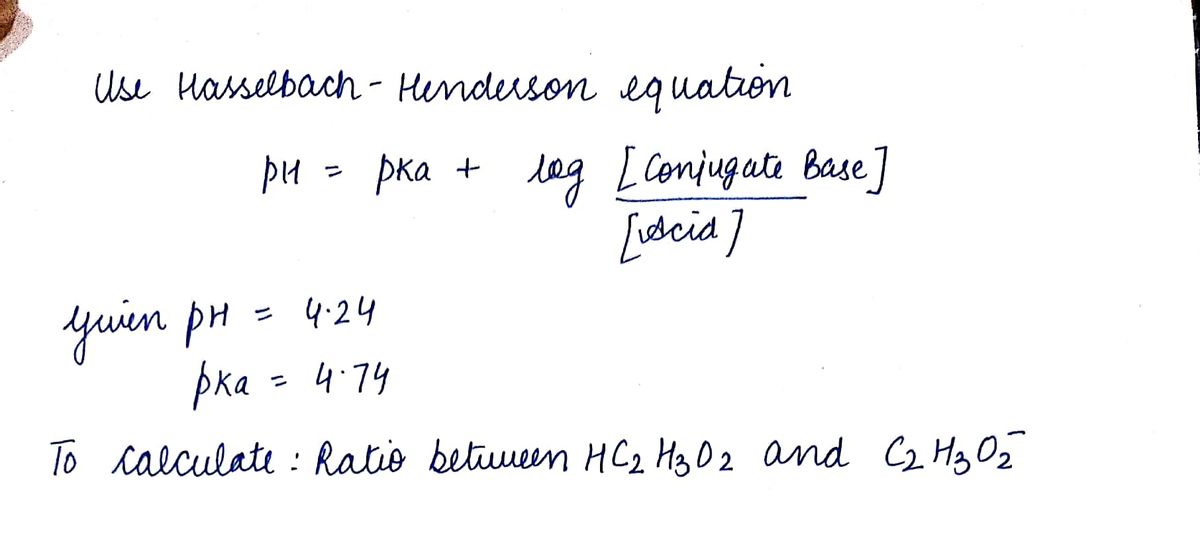 Use Hasselbach - Henderson equation
pH = pKa + log [Conjugate Base]
[Acid]
Given pH = 4.24
pKa = 4.74
To calculate : Ratio between HC₂H₃O₂ and C₂H₃O₂⁻